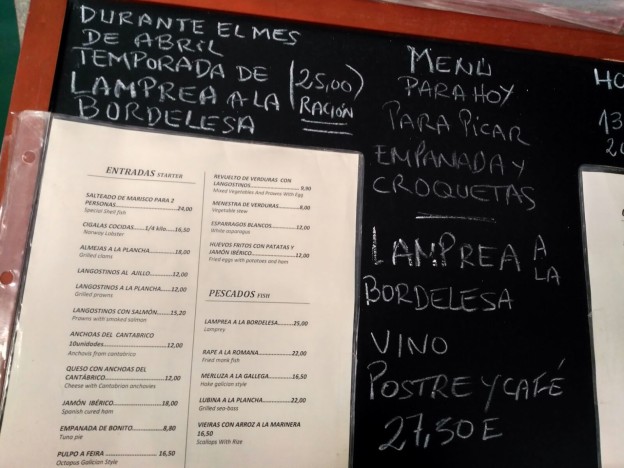 DURANTE EL MES
DE ABRIL
TEMPORADA DE
LAMPREA A LA
BORDELESA
(25,00)
RACIÓN
ENTRADAS STARTER
SALTEADO DE MARISCO PARA 2
PERSONAS.................24,00
Special Shell fish
CIGALAS COCIDAS......1/4 kilo....16,50
Norway Lobster
ALMEJAS A LA PLANCHA............18,00
Grilled clams
LANGOSTINOS AL AJILLO..........12,00
LANGOSTINOS A LA PLANCHA......12,00
Grilled prawns
LANGOSTINOS CON SALMÓN......15,20
Prawns with smoked salmon
ANCHOAS DEL CANTABRICO
10unidades.................12,00
Anchovis from cantabrico
QUESO CON ANCHOAS DEL
CANTÁBRICO.................12,00
Cheese with Cantabrian anchovies
JAMÓN IBÉRICO.................18,00
Spanish cured ham
EMPANADA DE BONITO............8,80
Tuna pie
PULPO A FEIRA ................. 16,50
Octopus Galician Style
REVUELTO DE VERDURAS CON
LANGOSTINOS.................9,90
Mixed Vegetables And Prawns With Egg
MENESTRA DE VERDURAS..........8,00
Vegetable stew
ESPARRAGOS BLANCOS............12,00
White asparagus
HUEVOS FRITOS CON PATATAS Y
JAMÓN IBÉRICO.................12,00
Fried eggs with potatoes and ham
PESCADOS FISH
LAMPREA A LA BORDELESA..........25,00
Lamprey
RAPE A LA ROMANA.................22,00
Fried monk fish
MERLUZA A LA GALLEGA............16,50
Hake galician style
LUBINA A LA PLANCHA............22,00
Grilled sea-bass
VIEIRAS CON ARROZ A LA MARINERA
16,50
Scallops With Rize
MENÚ
PARA HOY
PARA PICAR
EMPANADA Y
CROQUETAS
LAMPREA A LA
BORDELESA
VINO
POSTRE Y CAFÉ
27,50 E